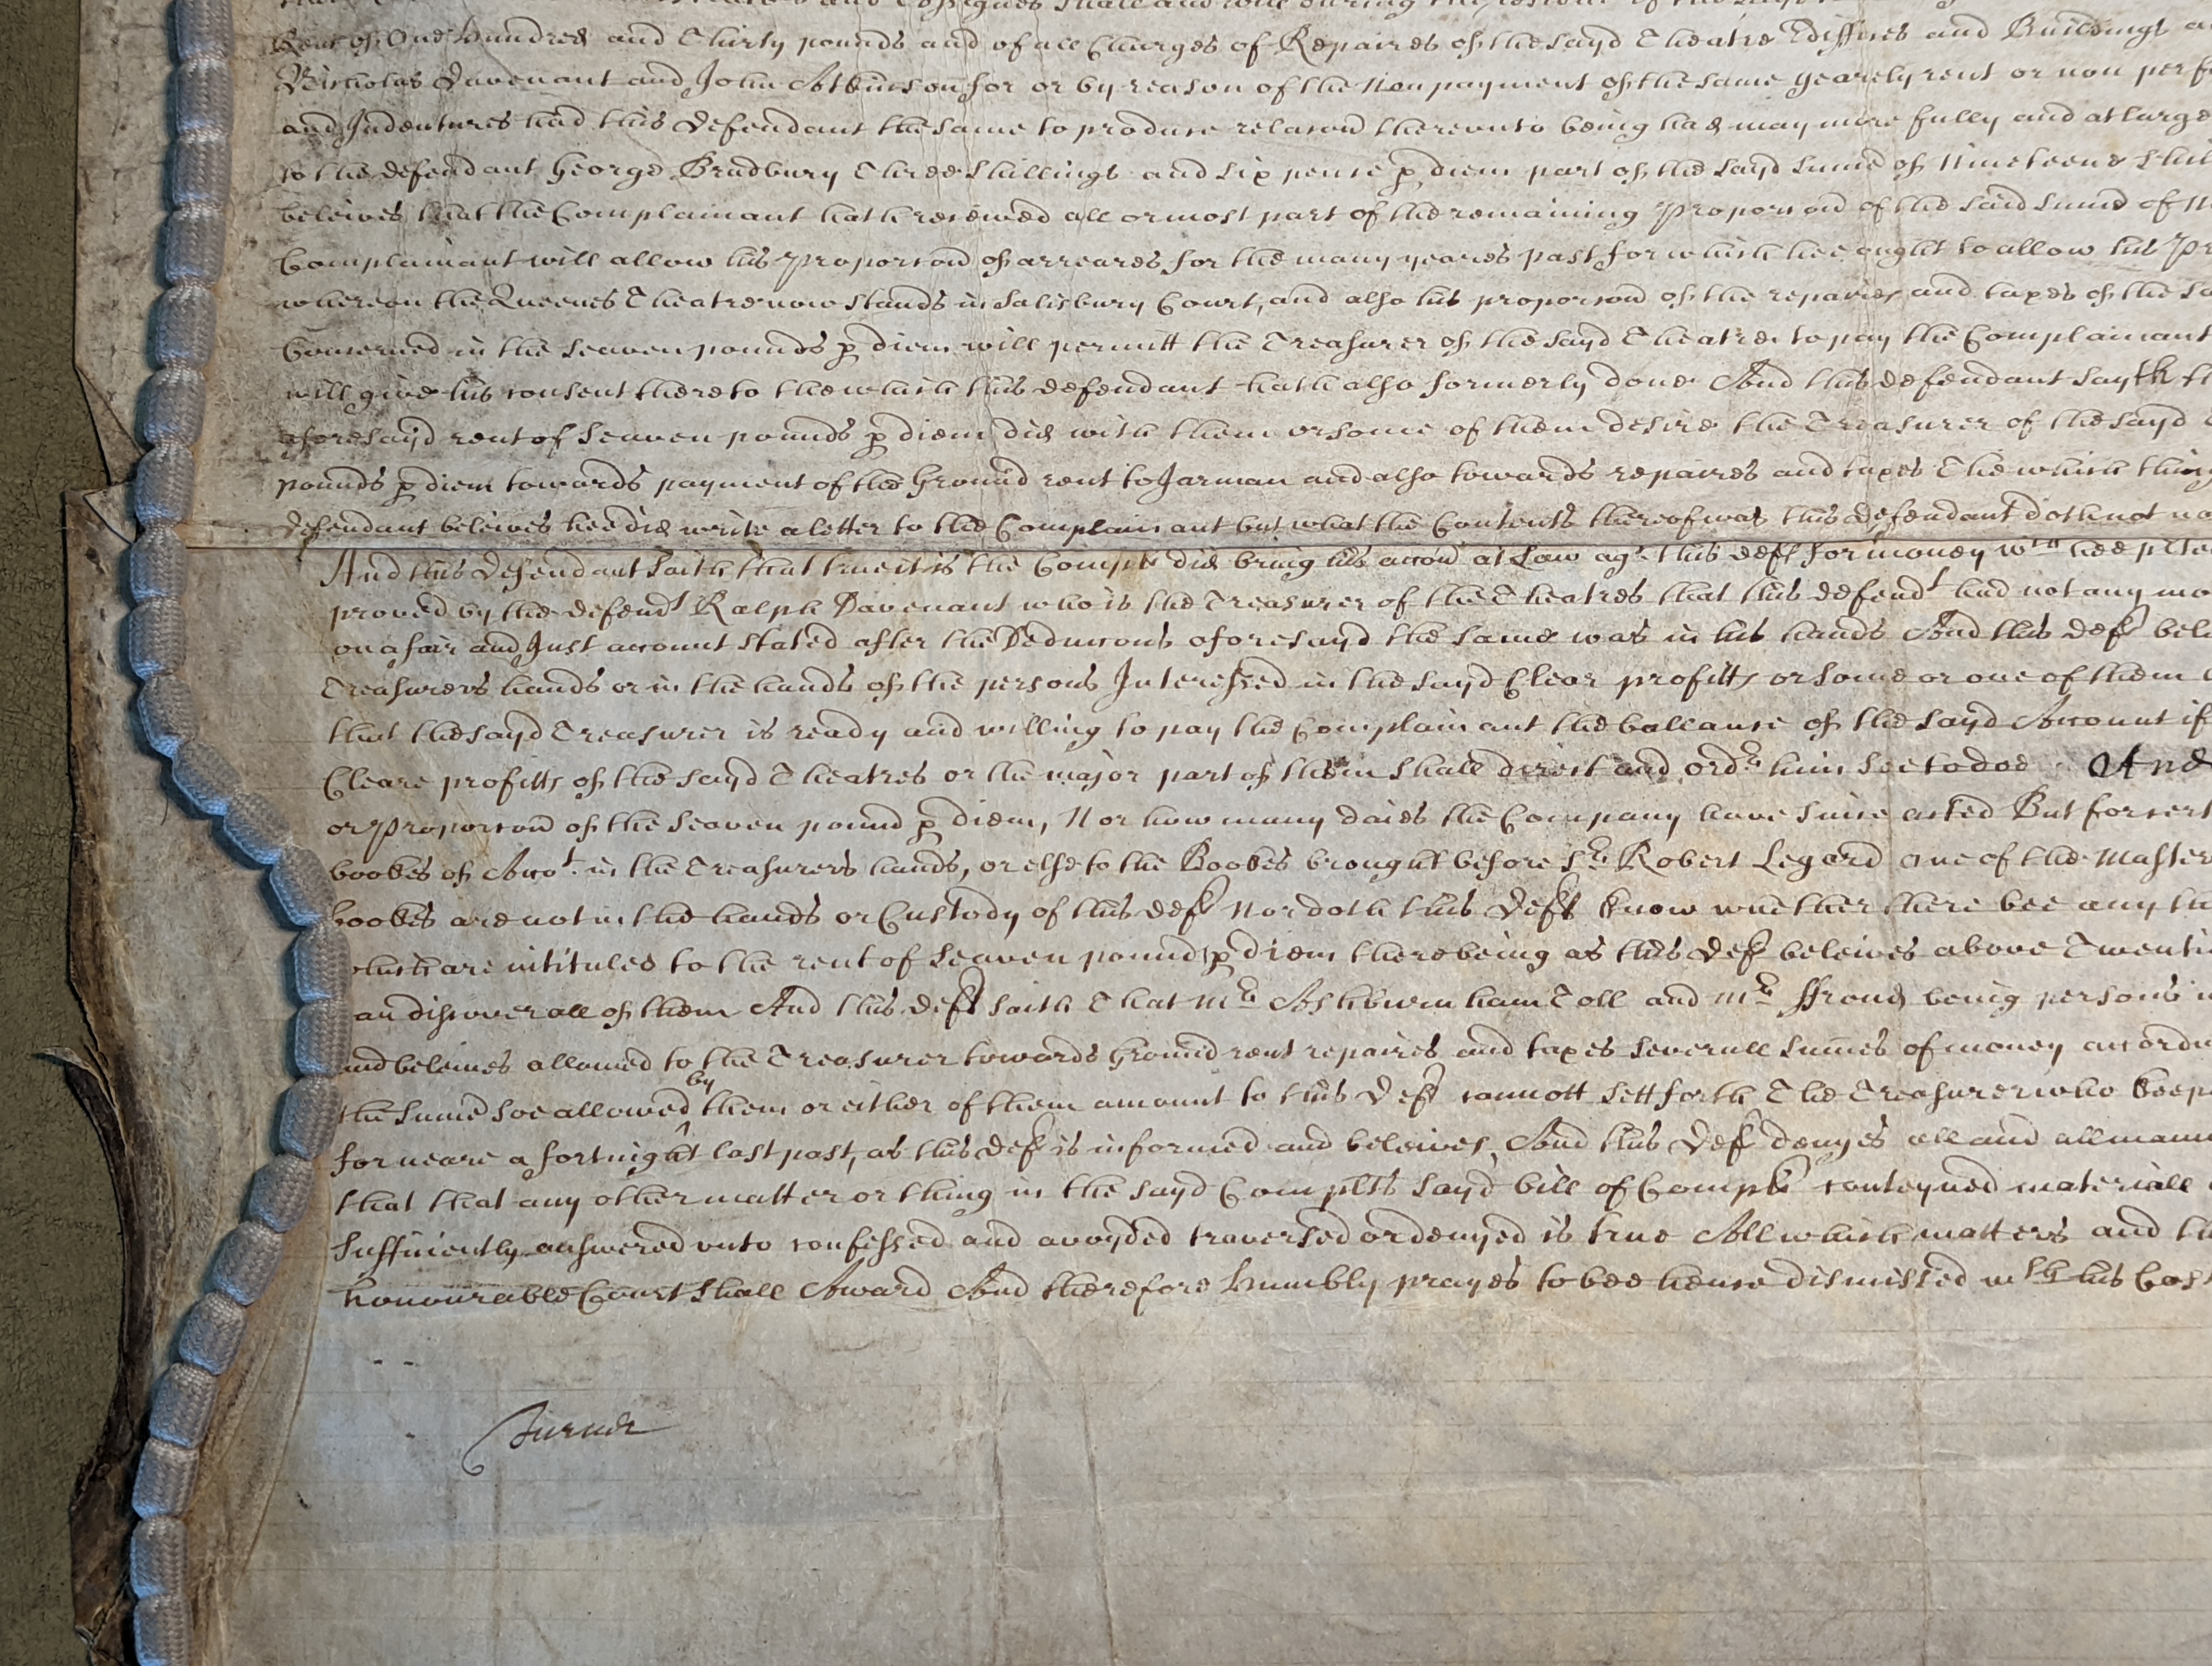 and Assignes shall and will during the
Rent of One hundred and Thirty pounds and of all Charges of Repaires of the sayd Theatre Ediffices and Buildings
Nicholas Davenant and John Atkinson for or by reason of the Non payment of the same yearely rent or non perf
and Indentures had this defendant the same to produce relacon therevnto being had may more fully and at large
to the defendant George Bradbury Three Shillings and six pence p diem part of the sayd sume of Nineteene shil
beleives that the Complainant hath received all or most part of the remaining Proporcon of the said sume of
Complainant will allow his Proporcon of arreares for the many yeares past for which hee ought to allow his Pr
whereon the Queenes Theatre now stands in Salisbury Court, and also his proporcon of the repaires and taxes of the
Concerned in the seaven pounds p diem will permitt the Treasurer of the sayd Theatre to pay the Complainant
will give his consent thereto the which this defendant hath also formerly done And this defendant sayth
aforesayd rent of seaven pounds p diem did with them or some of them desire the Treasurer of the sayd
pounds p diem towards payment of the Ground rent to Jarman and also towards repaires and taxes The which thing
defendant beleives hee did write a letter to the Complainant but what the Contents thereof was this defendant doth not
And this Defendant saith that true it is the Complt did bring his accon at Law agt this deft for money wch hee
proved by the defendt Ralph Davenant who is the Treasurer of the Theatres that this defendt had not any mo
on a fair and Just account stated after the Deduccons aforesayd the same was in his hands And this deft bel
Treasurers hands or in the hands of the persons Interessed in the sayd Clear profitts or some or one of them
that the sayd Treasurer is ready and willing to pay the Complainant the ballance of the sayd Account if
Cleare profitts of the sayd Theatres or the major part of them shall direct and ordr him soe to doe And
or Proporcon of the seaven pound p diem, Nor how many daies the Company have since acted But for cert
bookes of Accot. in the Treasurers hands, or else to the Bookes brought before Sr Robert Legard one of the Master
bookes are not in the hands or Custody of this deft Nor doth this Deft know whether there bee any
which are intituled to the rent of seaven pound p diem there being as this Deft beleives above Twentie
can discover all of them And this deft saith That Mr Ashburnham Toll and Mr ffroud being persons
and beleives allowed to the Treasurer towards Ground rent repaires and taxes severall sumes of money accord
the sume soe allowed by them or either of them amount to this Deft cannott sett forth The Treasurer who keep
for neare a fortnight last past, as this deft is informed and beleives, And this Deft denyes all and all mann
that that any other matter or thing in the sayd Complts sayd bill of Complt conteyned materiall
sufficiently answered vnto confessed and avoyded traversed or denyed is true All which matters and
honourable Court shall Award And therefore humbly prayes to bee hence dismissed wth his Cos
Turner